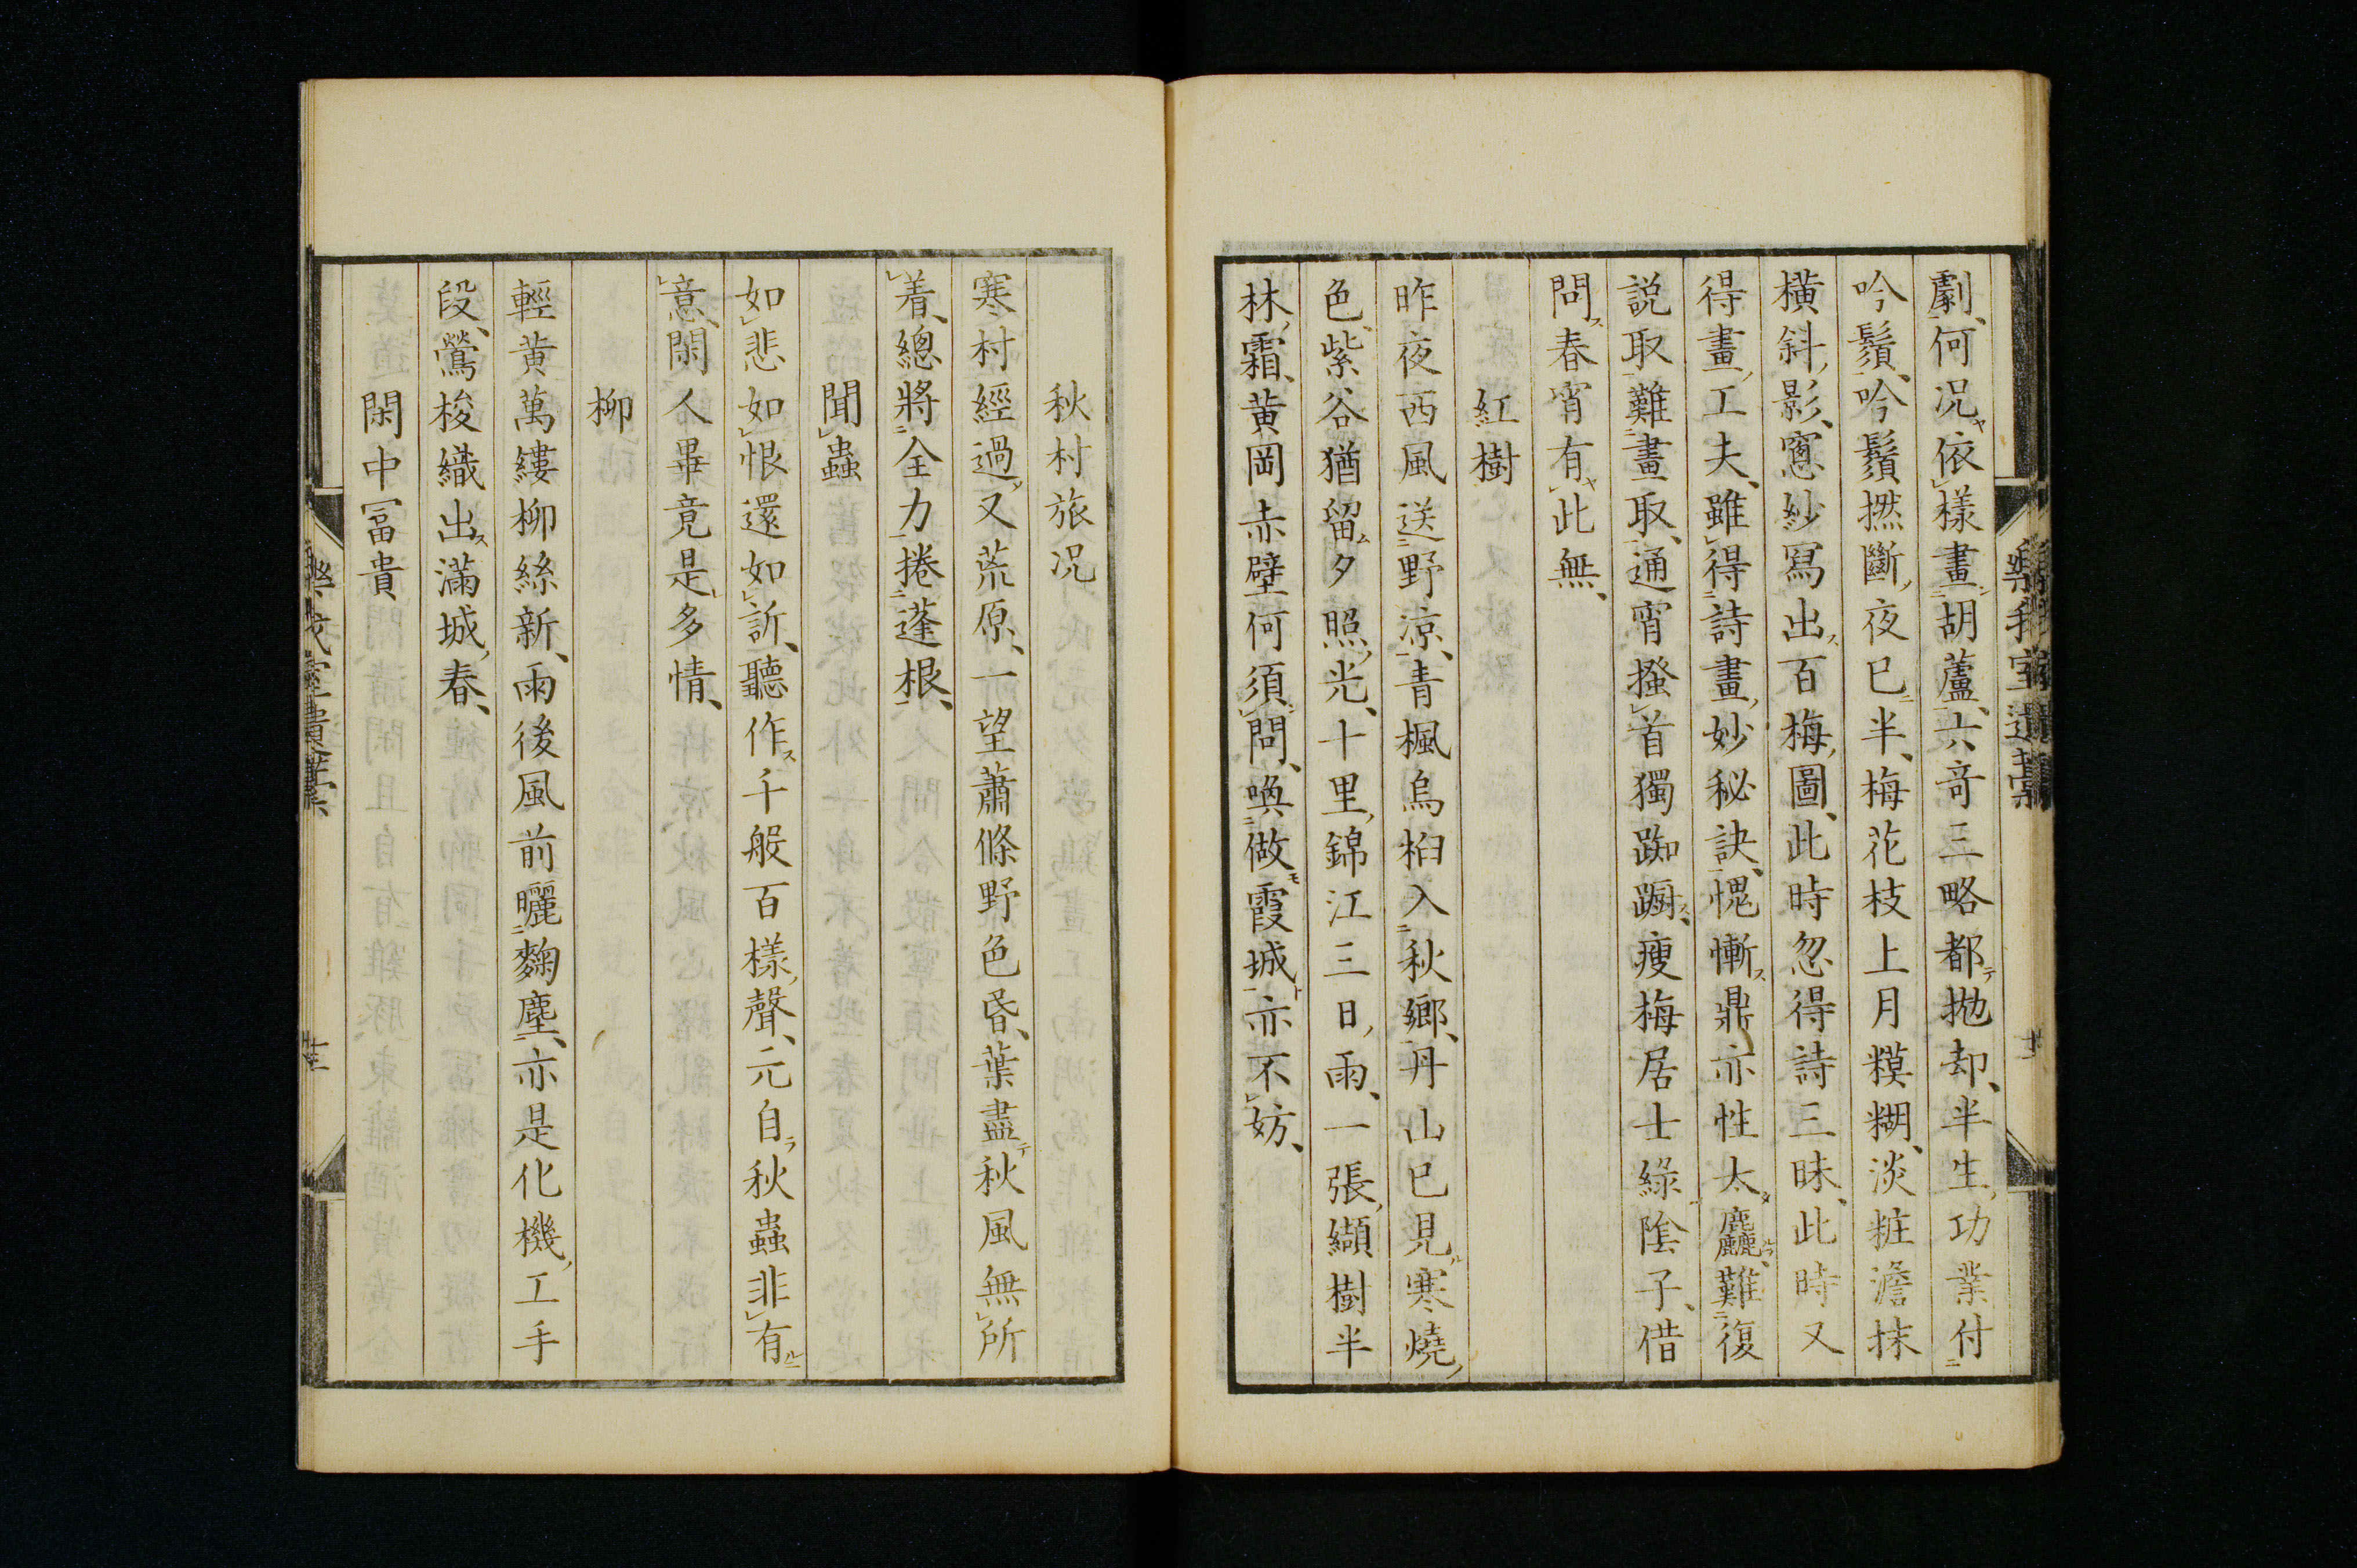 劇何况依樣畫胡蘆六奇三略都拋却半生功業付
吟鬚吟鬚撚斷夜已半梅花枝上月糢糊淡粧澹抹
橫斜影窻紗寫出百梅圖此時忽得詩三昧此時又
得畫工夫雖得詩畫妙秘訣愧慚鼎亦性太麤難復
説取難畫取通宵搔首獨踟蹰瘦梅居士綠陰子借
問春宵有此無
紅樹
昨夜西風送野涼青楓烏桕入秋鄉丹山已見寒燒
色紫谷猶留夕照光十里錦江三日雨一張纈樹半
林霜黄岡赤壁何須問喚做霞城亦不妨
秋村旅况
寒村經過又荒原一望蕭條野色昏葉盡秋風無所
着總將全力捲蓬根
聞蟲
如悲如恨還如訴聽作千般百樣聲元自秋蟲非有
意閑人畢竟是多情
柳
輕黄萬縷柳絲新雨後風前曬麴塵亦是化機工手
段鶯梭織出滿城春
閑中冨貴